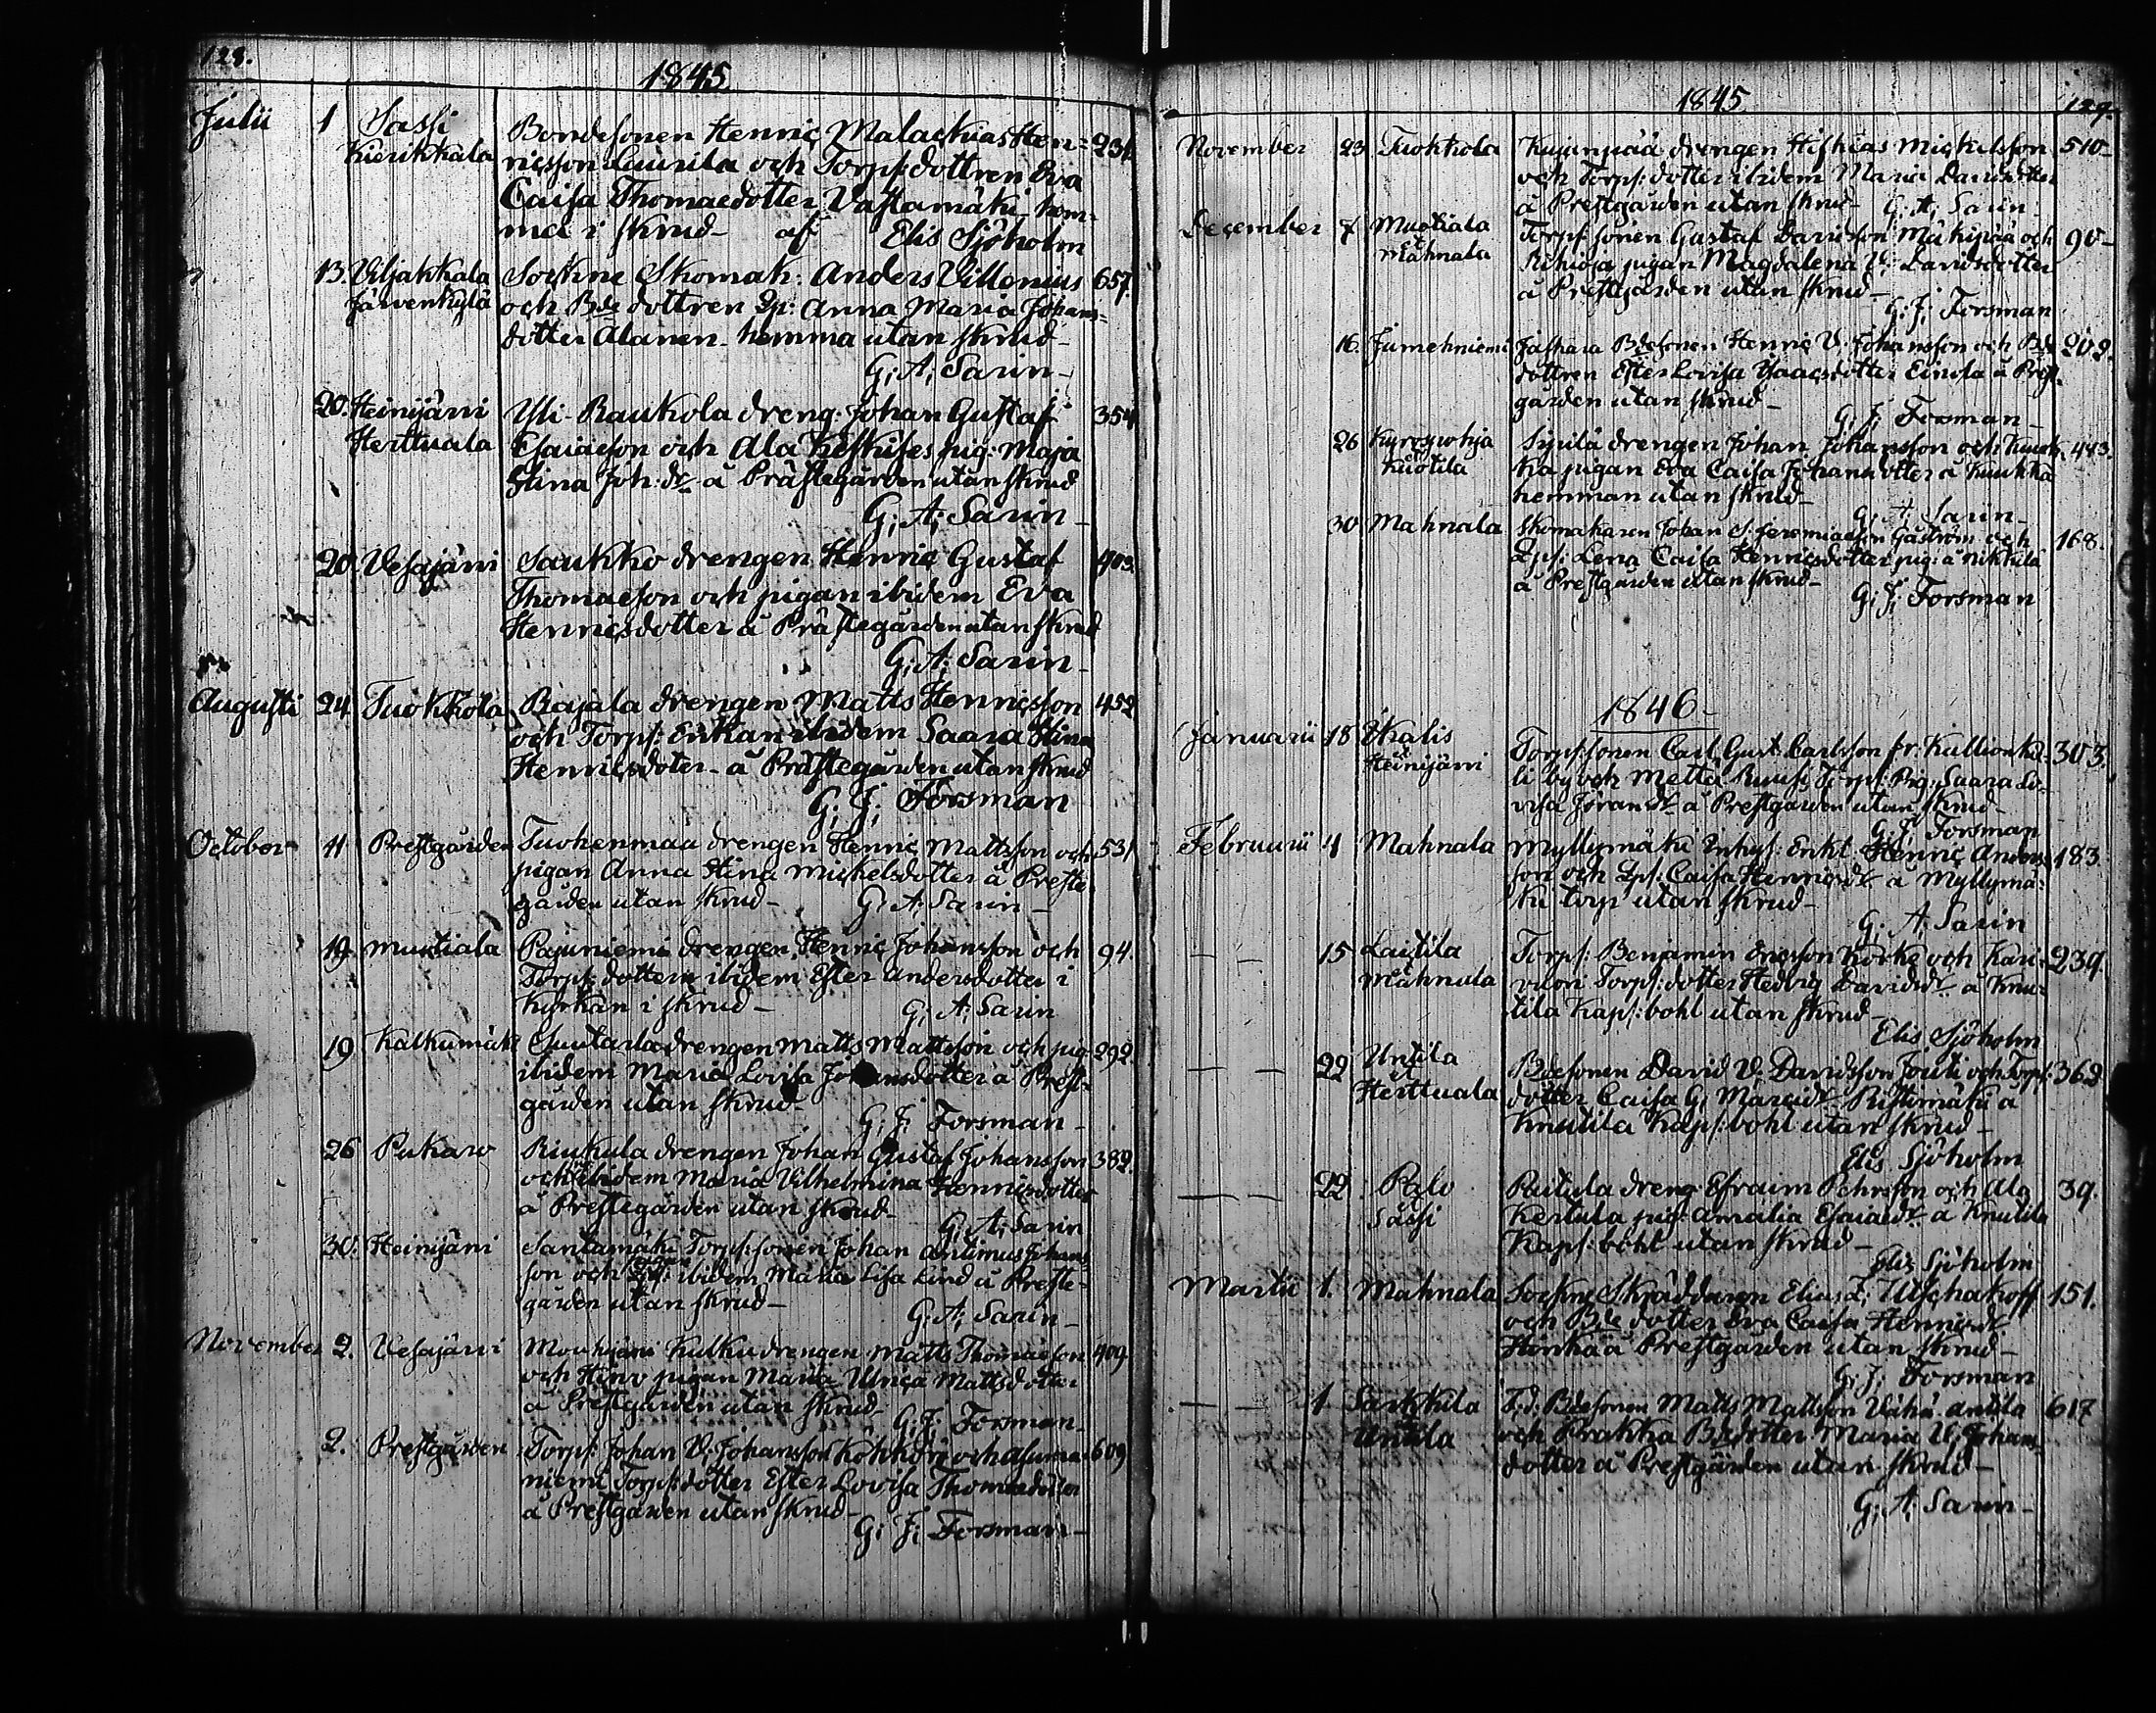 128.
1845
Julii 1 Sassi Bondesonen Henric Malackias Hen= 231
Kierikkala ricsson Laurila och Torp: dottren Eva
Caisa Thomaedotter Vastamäki, hem-
ma i skrud - af Elis Sjöholm
13. Viljakkala Sockne Skomak: Anders Villenius 657.
Järvenkylä och Bde dottren Anna Maria Johans=
dotter Alanen - hemma utan skrud -
G: A: Sarin -
20. Heinijärvi Yli-Raukola dreng: Johan Gustaf 354
Herttuala Esaiæson och Ala Keskises pig: Maja
Stina Joh: dr å Prästegården utan skrud
G: A: Sarin -
20. Vesajärvi Saukko drengen Henric Gustaf 403.
Thomaeson och pigan ibidem Eva
Henricsdotter å Prästegården utan skrud
G: A: Sarin -
Augusti 24 Tuokkola Pajala drengen Matts Henricsson 452
och Torp: Enkan ibidem Saara Stina
Henricsdoter - å Prästegården utan skrud
G: J: Forsman
October 11 Prestgården Tuohenmaa drengen Henric Mattsson och 531
pigan Anna Stina Mickelsdotter å Preste
gården utan skrud - G: A: Sarin -
19. Mustiala Pajuniemi drengen Henric Johansson och 94.
Torp: dottern ibidem Ester Andersdotter i
Kyrkan i skrud - G: A: Sarin
19 Kalkumäki Suutarla drengen Matts Mattsson och pig: 292.
ibidem Maria Lovisa Johansdotter å Prest-
gården utan skrud -
G: J: Forsman -
26 Pukara Riukula drengen Johan Gustaf Johansson 382.
och ibidem Maria Vilhelmina Henricsdotter
å Prestegården utan skrud -
G: A: Sarin
30. Heinijärvi Santamäki Torp: sonen Johan Antimus Johans
son och ibidem Maria Lisa Lind å Preste-
gården utan skrud -
G: A: Sarin -
November 2. Vesajärvi Mouhijärvi Kulku drengen Matts Thomaeson 409
och Hinro pigan Maria Ulrica Mattsdotter
å Prestgården utan skrud -
G: J: Forsman -
2. Prestgården Torp: Johan V: Johansson Kohkori och Asuma- 609
niemi Torp: dotter Ester Lovisa Thomædotter
å Prestgården utan skrud -
G: J: Forsman -
1845 129.
November 23 Tuokkola Kujunpää drengen Hiskias Mickelsson 510
och Torp: dotter ibidem Maria Davidsdotter
å Prestgården utan skrud - G: A: Sarin
December 7 Mustiala Torp: sonen Gustaf Davidsson Mäkipää och 90-
et Mahnala Rihioja pigan Magdalena V: Davidsdotter
å Prestgården utan skrud -
G: J: Forsman
16. Jumehniemi Jaskara Bdesonen Henric V: Johansson och Bde 202.
dottren Ester Lovisa Isaacsdotter Einola å Prest
gården utan skrud -
G: J: Forsman -
26 Kyröspohja Sipilä drengen Johan Johansson och Kuuk- 443.
Kuotila ka pigan Eva Caisa Johansdotter å Kuukka
hemman utan skrud -
G: A: Sarin -
30 Mahnala Skomakaren Johan S: Jeremiæson Gåström och 168.
Lena Caisa Henricsdotter pig: å Nikkilä
å Prestgården utan skrud -
G: J: Forsman
1846 -
Januarii 18 Ikalis Torp: sonen Carl Gust: Carlsson fr: Kallionkie- 303.
et Heinijärvi li by och Metta Ruusi Torp: Pig: Saara Lo-
visa Johans dr å Prestgården utan skrud -
G: J: Forsman
Februarii 4 Mahnala Myllymäki Inhys: Enkl: Henric Anders- 183.
son och Caisa Henricsdr å Myllymä-
ki torp utan skrud -
G: A: Sarin
- - 15 Laitila Torp: Benjamin Ericsson Korke och Kari- 239.
Mahnala vuori Torp: dotter Hedvig Davidsdr å Knu-
tila Kap: bohl utan skrud -
Elis Sjöholm
- - 22 Untila Bdesonen David V. Davidsson Jouti och Torp: 362
et Herttuala dotter Caisa G: Marcidr Ristimäki å
Knutila Kap: bohl utan skrud -
Elis Sjöholm
- - 22 Palo Rutula dreng: Efraim Pehrsson och Ala 39.
Sassi Kertula pig: Amalia Esaiædr å Knutila
Kap: bohl utan skrud -
Elis Sjöholm
Martii 1. Mahnala Sockne Skräddaren Elias L: Utschakoff 151.
och Bde dotter Eva Caisa Henricsdr
Hinkää Prestgården utan skrud -
G: J: Forsman
- - 1. Sarkkila F: d: Bdesonen Matts Mattsson Vähä antila 617
et Untila och Prakka Bdedotter Maria V. Johans-
dotter å Prestgården utan skrud -
G: A: Sarin -